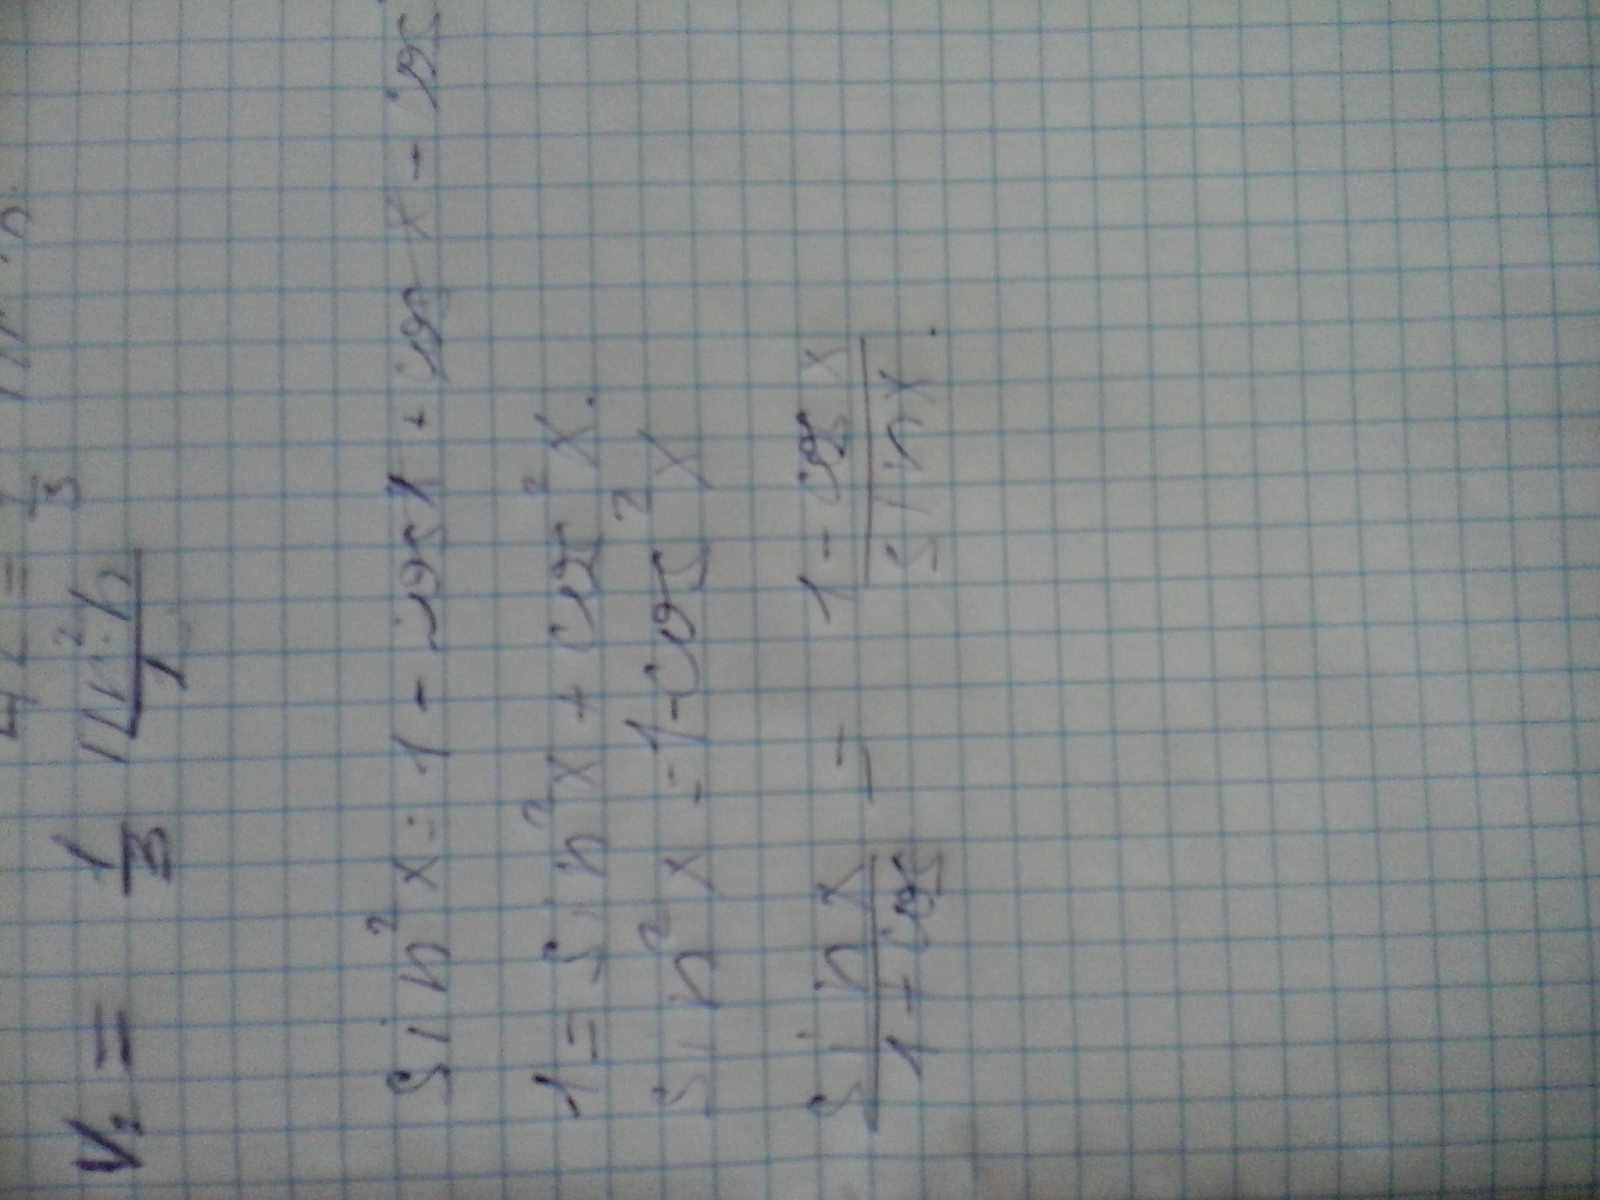 V₂ = 1/3 πr²·h
sin²x = 1 - cosx + cosx - cos
1 = sin²x + cos²x.
sin²x = 1 - cos²x
sinx/(1+cos) = (1-cosx)/(sinx).